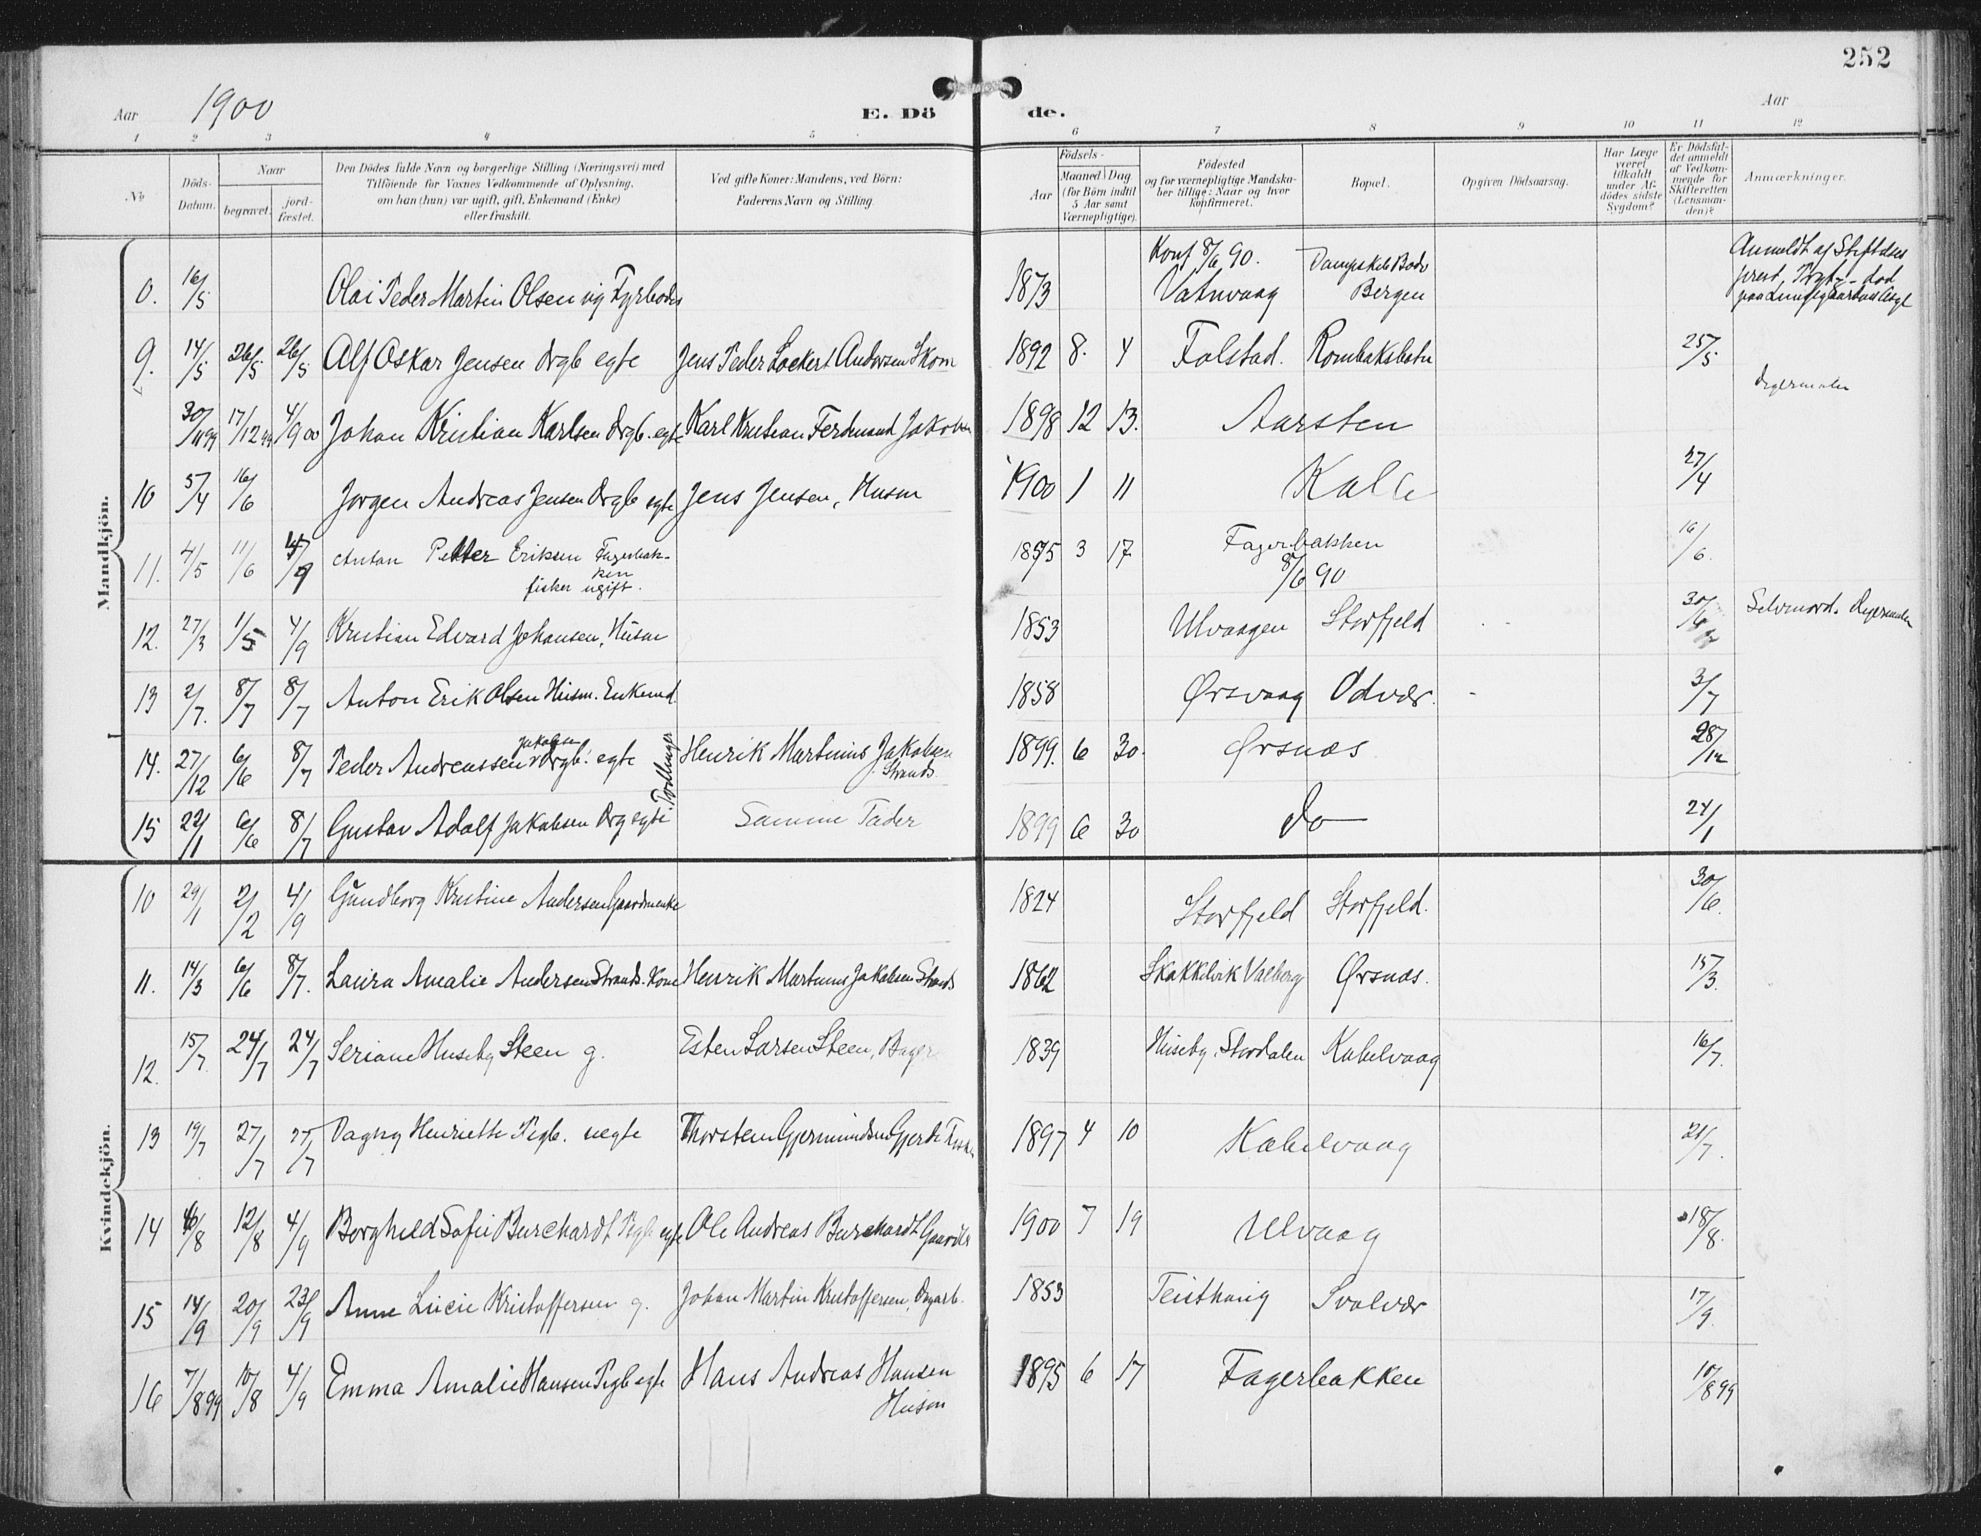 252
Aar 1900
E. Dö de.
Aar
1 2 3 4 5 6 7 8 9 10 11 12
No
Döds-
Datum.
Naar
begravet.
jord-
fæstet.
Den Dödes fulde Navn og borgerlige Stilling (Næringsvei) med
Tilföiende for Voxnes Vedkommende af Oplysning,
om han (hun) var ugift, gift, Enkemand (Enke)
eller fraskilt.
Ved gifte Koner: Mandens, ved Börn:
Faderens Navn og Stilling.
Födsels-
Aar
Maaned Dag
(for Börn indtil
5 Aar samt
Værnepligtige).
Födested
og for værnepligtige Mandska-
ber tillige: Naar og hvor
konfirmeret.
Bopæl.
Opgiven Dödsaarsag.
Har Læge
været
tilkaldt
under Af-
dödes sidste
Sygdom?
Er Dödsfal-
det anmeldt
af Vedkom-
mende for
Skifteretten
(Lensman-
den)?
Anmærkninger.
Mandkjön.
0. 16/5 Olai Peder Martin Olsen ug Fyrböder 1873 Konf 8/6 90. Vatnvaag Dampskib Bodø Bergen Anmeldt af Stiftelses
prest,
9. 14/5 26/5 26/5 Alf Oskar Jensen Drgb egte Jens Peder Lockert Andersen Skom 1892 8. 4 Falstad. Rombaksbotn 25/5
30/11 99 17/12 99 4/9 00 Johan Kristian Karlsen Drgb. egte Karl Kristian Ferdinand Jakobsen 1898 12 13. Aarsten Digermulen
10 5/4 16/6 Jorgen Andreas Jensen Drgb egte Jens Jensen, Husm 1900 1 11 Kalle 27/4
11. 4/5 11/6 4/9 Anton Petter Eriksen Fagerbak-
ken
fisker ugift. 1875 3 17 Fagerbakken
8/6 90 16/6.
12. 27/3 1/5 4/9 Kristian Edvard Johansen, Husm 1853 Ulvaagen Storfjeld 30/6 Selvmord. Digermulen
13 2/7. 8/7 8/7 Anton Erik Olsen Husm. Enkemd. 1858 Ørsvaag Odvær. 3/7
14. 27/12 6/6 8/7 Peder Andreassen Jakobsen Drgb. egte Tvillinger Henrik Martinius Jakobsen
Strands. 1899. 6 30. Ørsnæs. 28/12
15 22/1 6/6 8/7 Gustav Adolf Jakobsen Drg egte Samme Fader 1899 6 30 do 24/1
Kvindekjön.
10 29/1 2/2 4/9 Gundborg Kristine Andersen Gaardmenke 1824 Storfjeld Storfjeld. 30/6.
11. 14/3 6/6 8/7. Laura Amalie Andersen Strands. Kone Henrik Martinius Jakobsen Strands 1862 Skakkelvik Valberg Ørsnæs. 15/3.
12. 15/7. 24/7 24/7 Seriane Huseby Steen g. Esten Larsen Steen, Bager 1839 Huseby, Stordalen Kabelvaag 16/7.
13 19/7 27/7 27/7 Dagny Henriette Pigb. uegte Thorstein Gjermundsen Gjerde 1897 4 10 Kabelvaag 21/7.
14 6/8 12/8 4/9 Borghild Sofie Burchardt Pigb egte Ole Andreas Burchardt Gaardbr 1900 7 19 Ulvaag 18/8.
15 14/9 20/9 23/9 Anne Lucie Kristoffersen g. Johan Martin Kristoffersen, Dagarb. 1853 Teisthaug Svolvær 17/9.
16 7/8 99 10/8 4/9 Emma Amalie Hansen Pigb egte Hans Andreas Hansen
Husm 1895 6 17 Fagerbakken 10/8 99